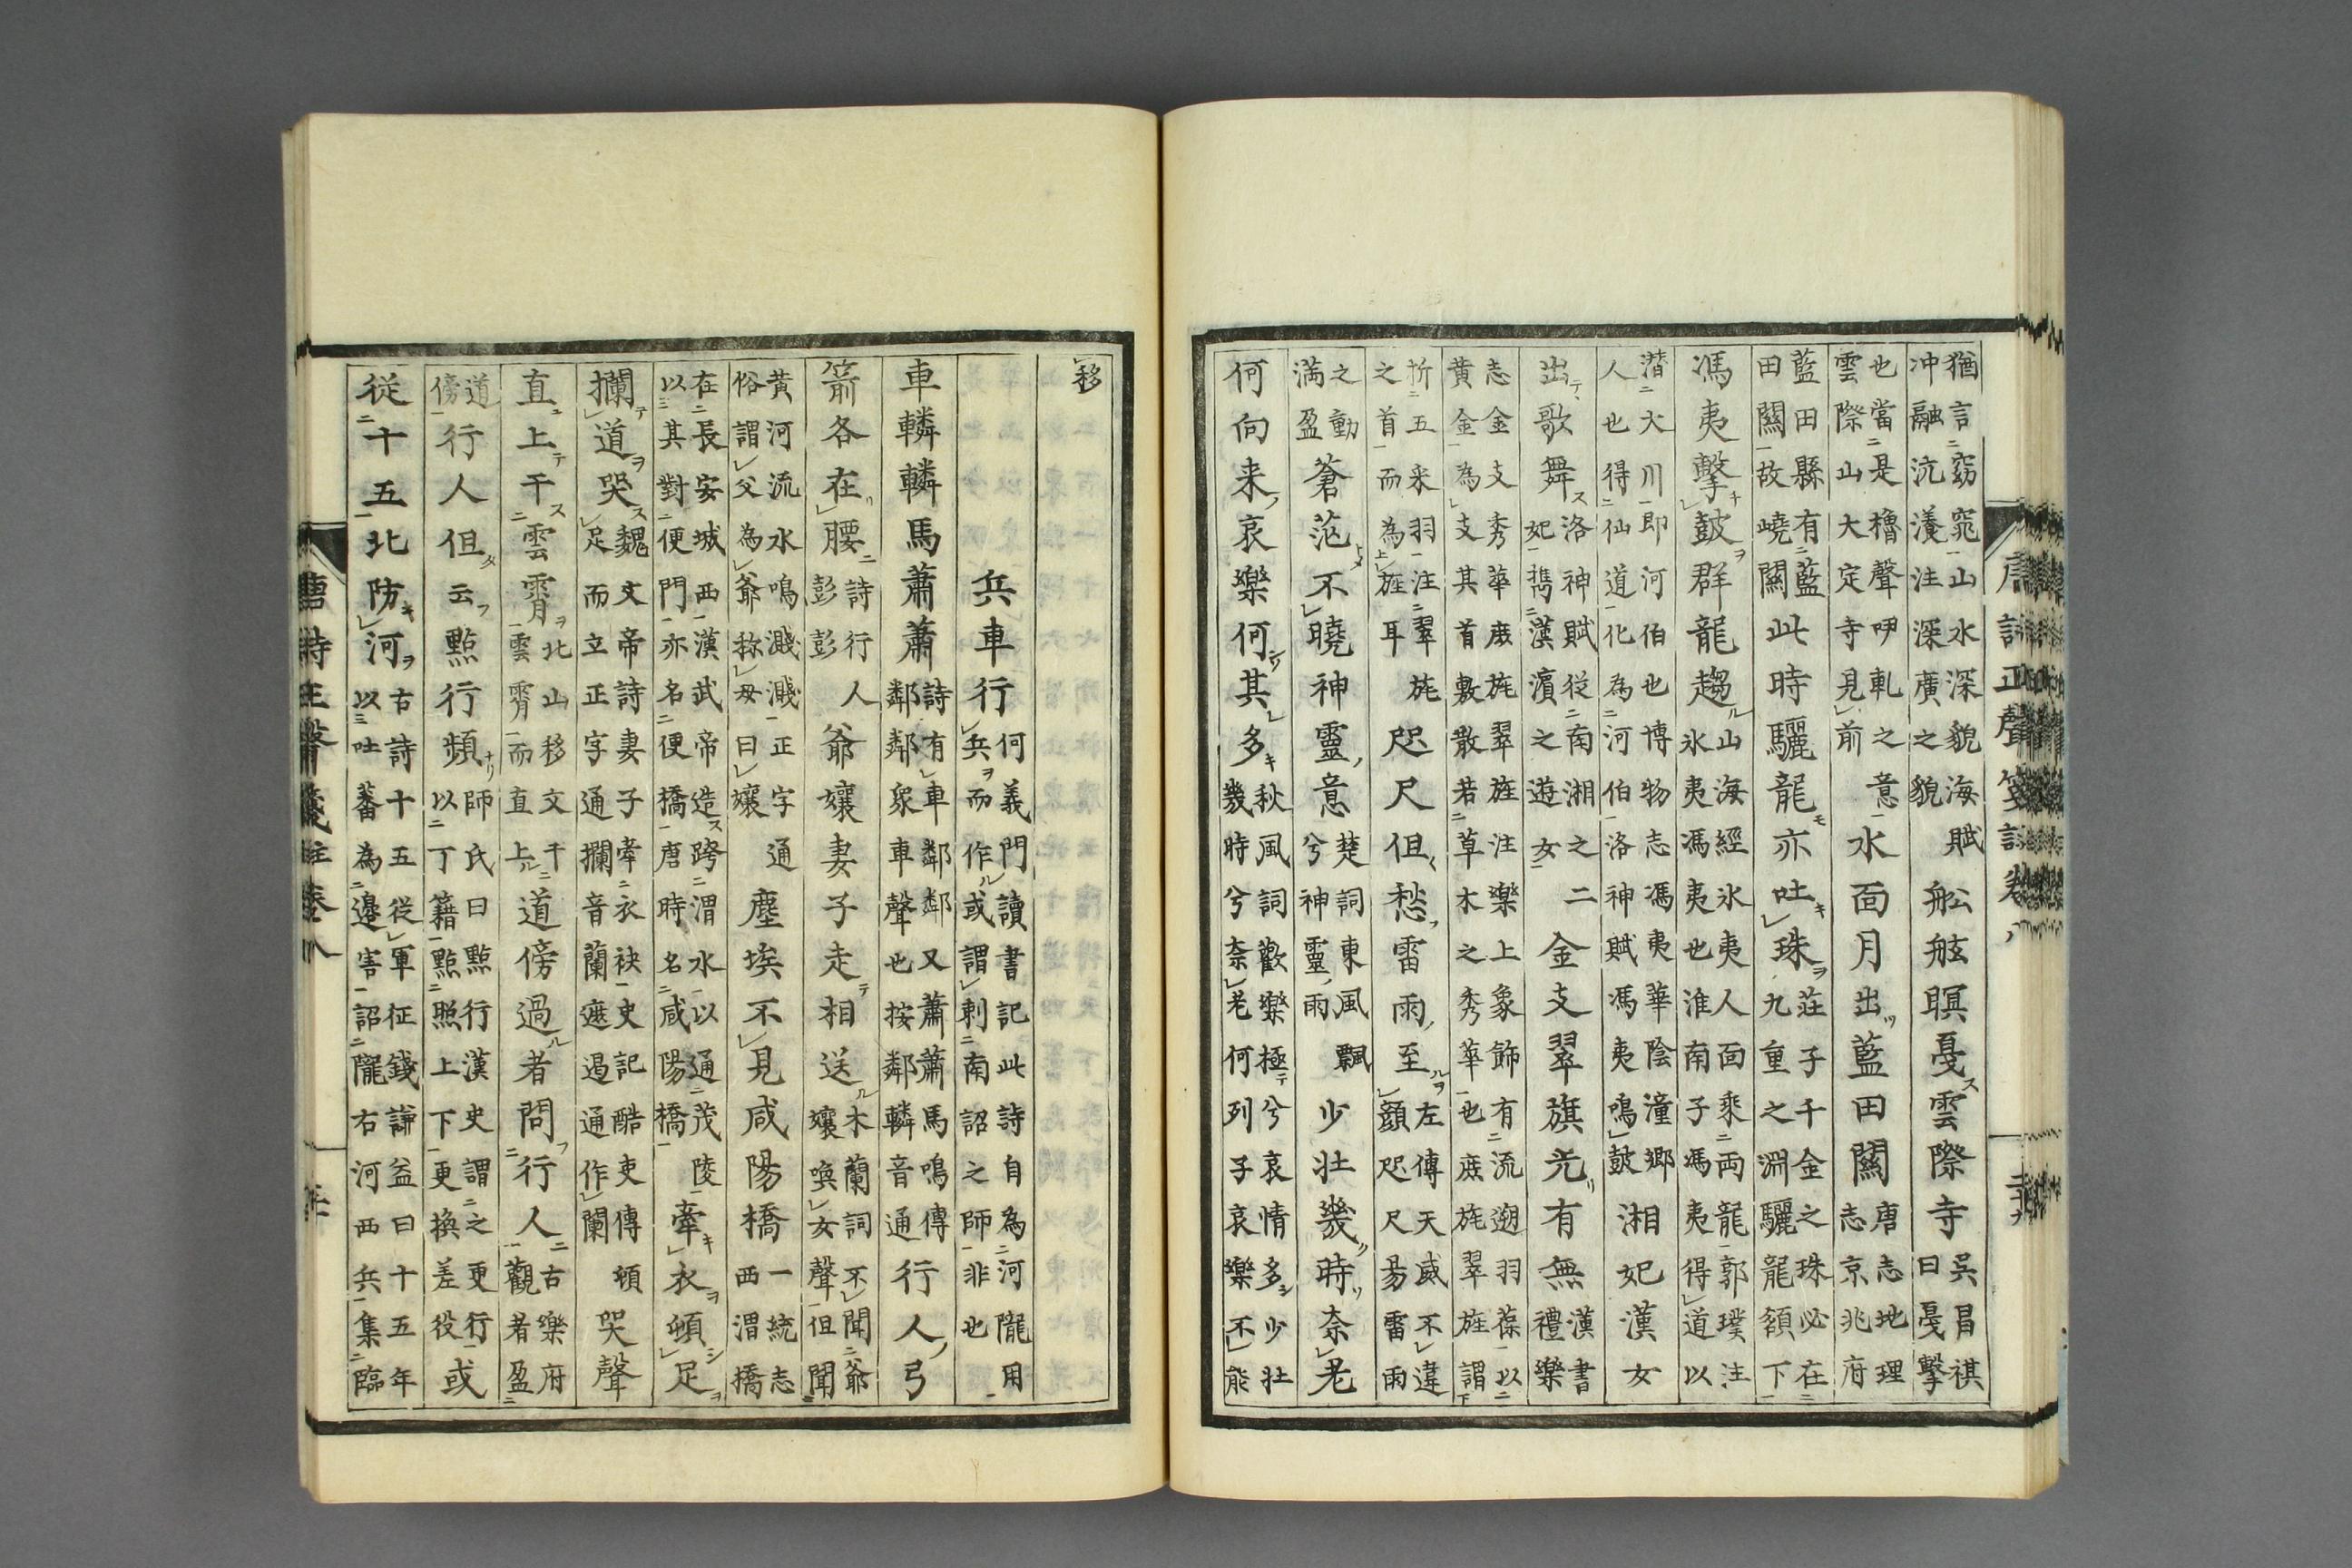 唐詩正聲箋註卷八
猶言窈窕山水深貌海賦
冲融沆瀁注深廣之貌
舩舷瞑戞雲際寺
吳昌祺
曰戞擊
也當是櫓聲咿軋之意
雲際山大定寺見前
水面月出藍田關
唐志地理
志京兆府
藍田縣有藍
田關故嶢關
此時驪龍亦吐珠
莊子千金之珠必在
九重之淵驪龍頷下
馮夷擊鼓群龍趨
山海經氷夷人面乘兩龍郭璞注
氷夷馮夷也淮南子馮夷得道以
潛大川即河伯也博物志馮夷華陰潼鄉
人也得仙道化為河伯洛神賦馮夷鳴鼓
湘妃漢女
出歌舞
洛神賦從南湘之二
妃携漢濱之遊女
金支翠旗光有無
漢書
禮樂
志金支秀華庶旄翠旌注樂上象飾有流遡羽葆以
黃金為支其首敷散若草木之秀華也庶旄翠旌謂
析五采羽注翠旄
之首而為旌耳
咫尺但愁雷雨至
左傳天威不違
顏咫尺昜雷雨
之動
満盈
蒼茫不曉神靈意
楚詞東風飄
兮神靈雨
少壯幾時奈老
何向来哀樂何其多
秋風詞歡樂極兮哀情多少壯
幾時兮奈老何列子哀樂不能
移
兵車行
何義門讀書記此詩自為河隴用
兵而作或謂刺南詔之師非也
車轔轔馬蕭蕭
詩有車鄰鄰又蕭蕭馬鳴傳
鄰鄰衆車聲也按鄰轔音通
行人弓
箭各在腰
詩行人
彭彭
爺孃妻子走相送
木蘭詞不聞爺
孃喚女聲但聞
黄河流水鳴濺濺正字通
俗謂父為爺称母曰孃
塵埃不見咸陽橋
一統志
西渭橋
在長安城西漢武帝造跨渭水以通茂陵
以其對便門亦名便橋唐時名咸陽橋
牽衣頓足
攔道哭
魏文帝詩妻子牽衣袂史記酷吏傳頓
足而立正字通攔音蘭遮遏通作闌
哭聲
直上干雲霄
北山移文干
雲霄而直上
道傍過者問行人
古樂府
觀者盈
道
傍
行人但云點行頻
師氏曰點行漢史謂之更行
以丁籍點照上下更換差役
或
從十五北防河
古詩十五從軍征錢謙益曰十五年
以吐蕃為邊害詔隴右河西兵集臨
唐詩正聲箋註卷八